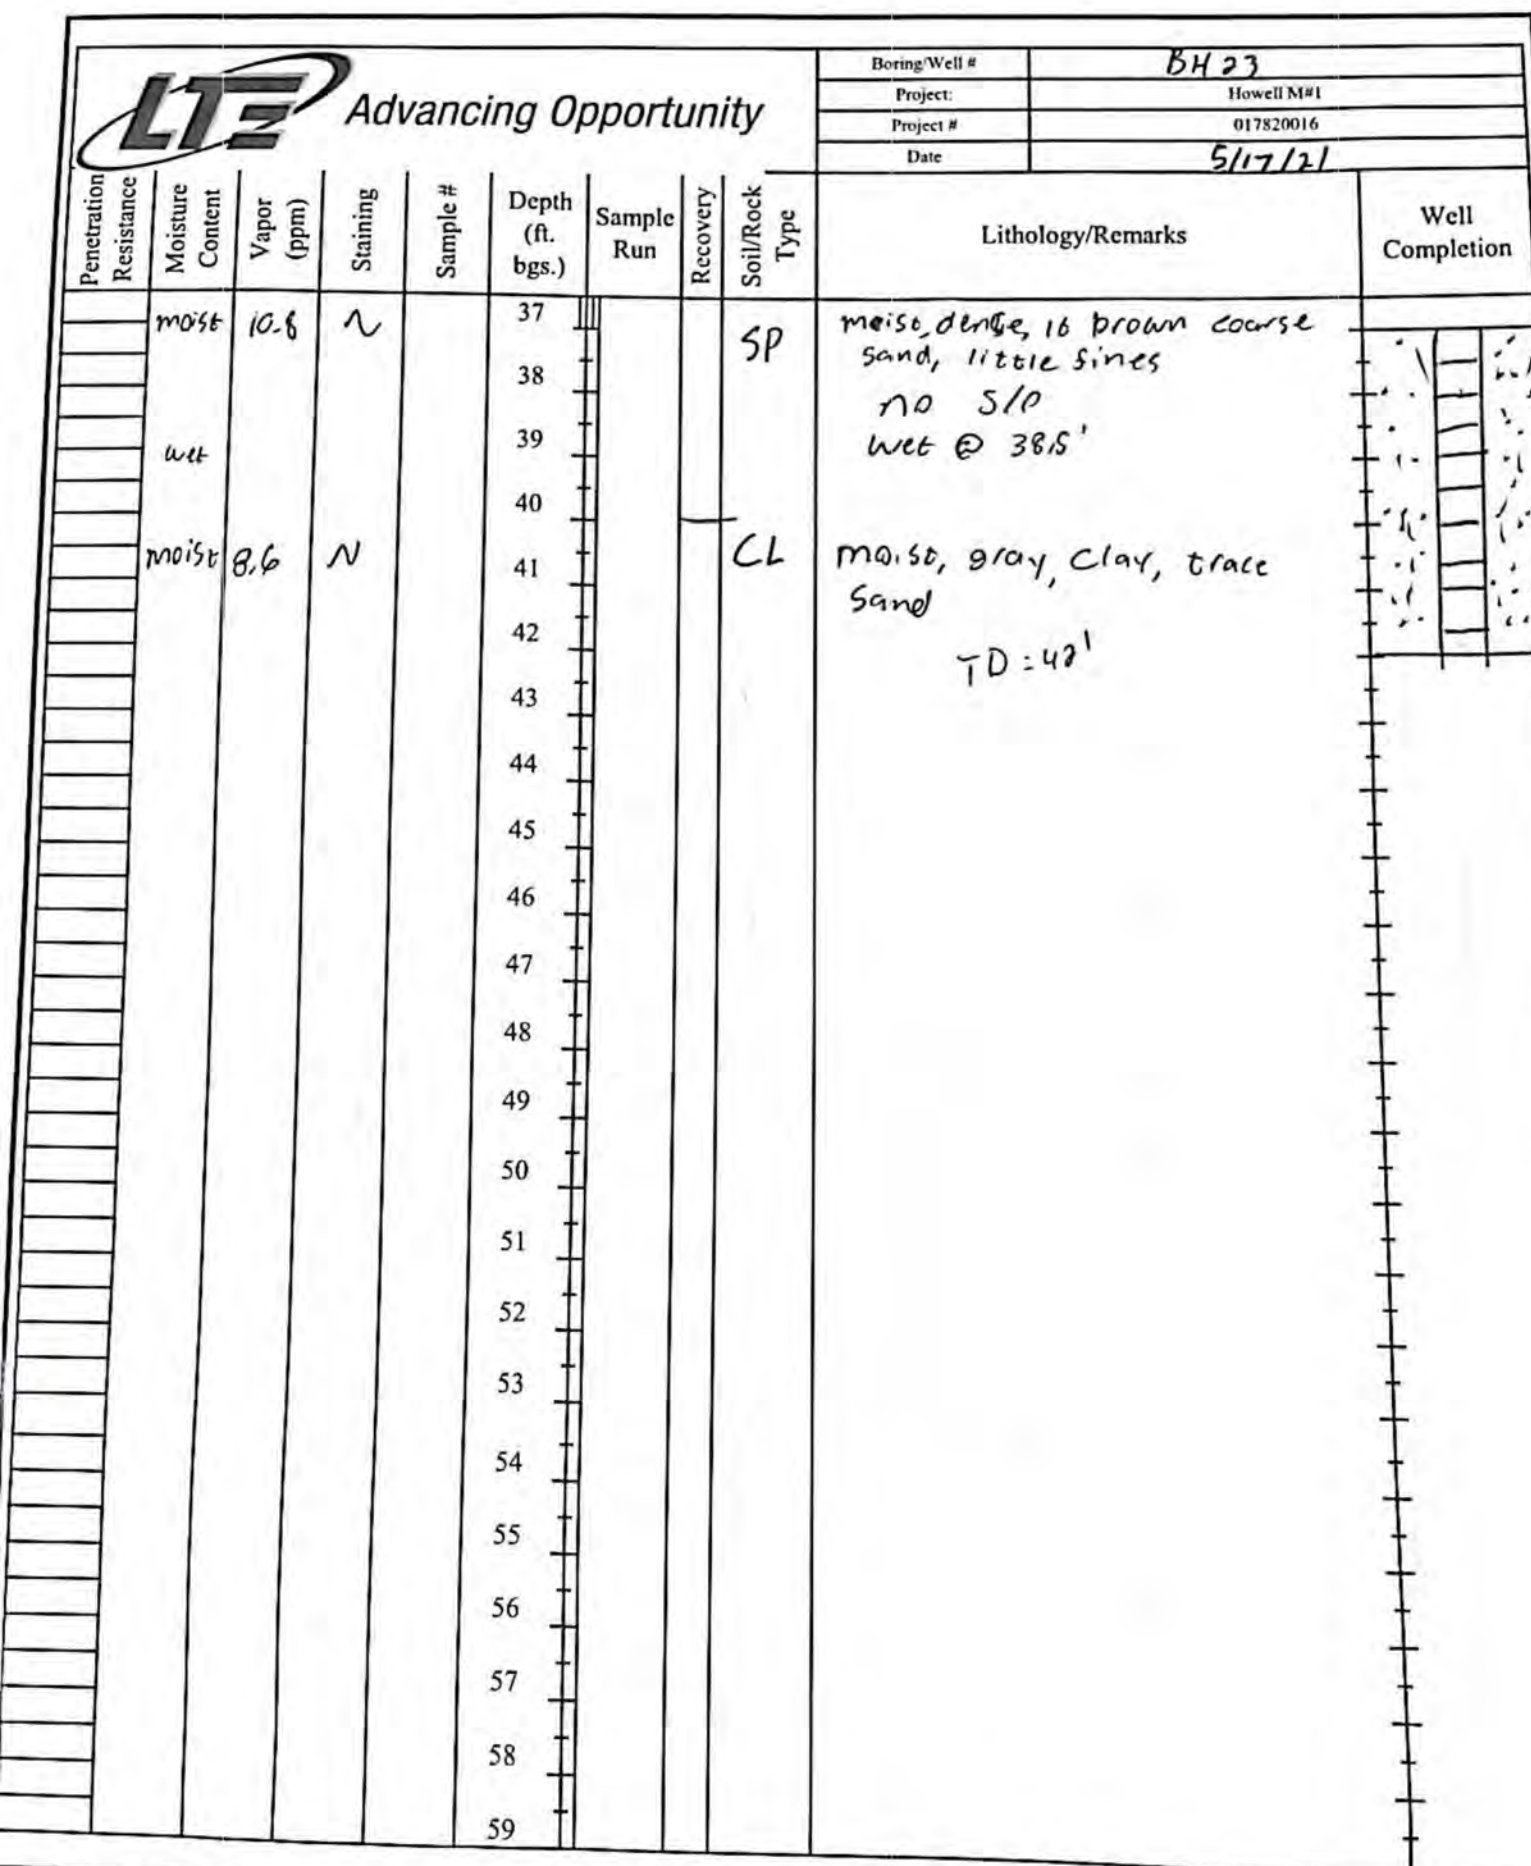 LTE Advancing Opportunity
Boring/Well # BH23
Project: Howell M#1
Project # 017820016
Date 5/17/21
Penetration
Resistance
Moisture
Content
Vapor
(ppm)
Staining
Sample #
Depth
(ft.
bgs.)
Sample
Run
Recovery
Soil/Rock
Type
Lithology/Remarks
Well
Completion
moist 10.8 N 37 SP moist, dense, lt brown coarse
sand, little fines
38
no s/o
wet 39 wet @ 38.5'
40
moist 8.6 N 41 CL moist, gray, clay, trace
sand
42
TD = 42'
43
44
45
46
47
48
49
50
51
52
53
54
55
56
57
58
59